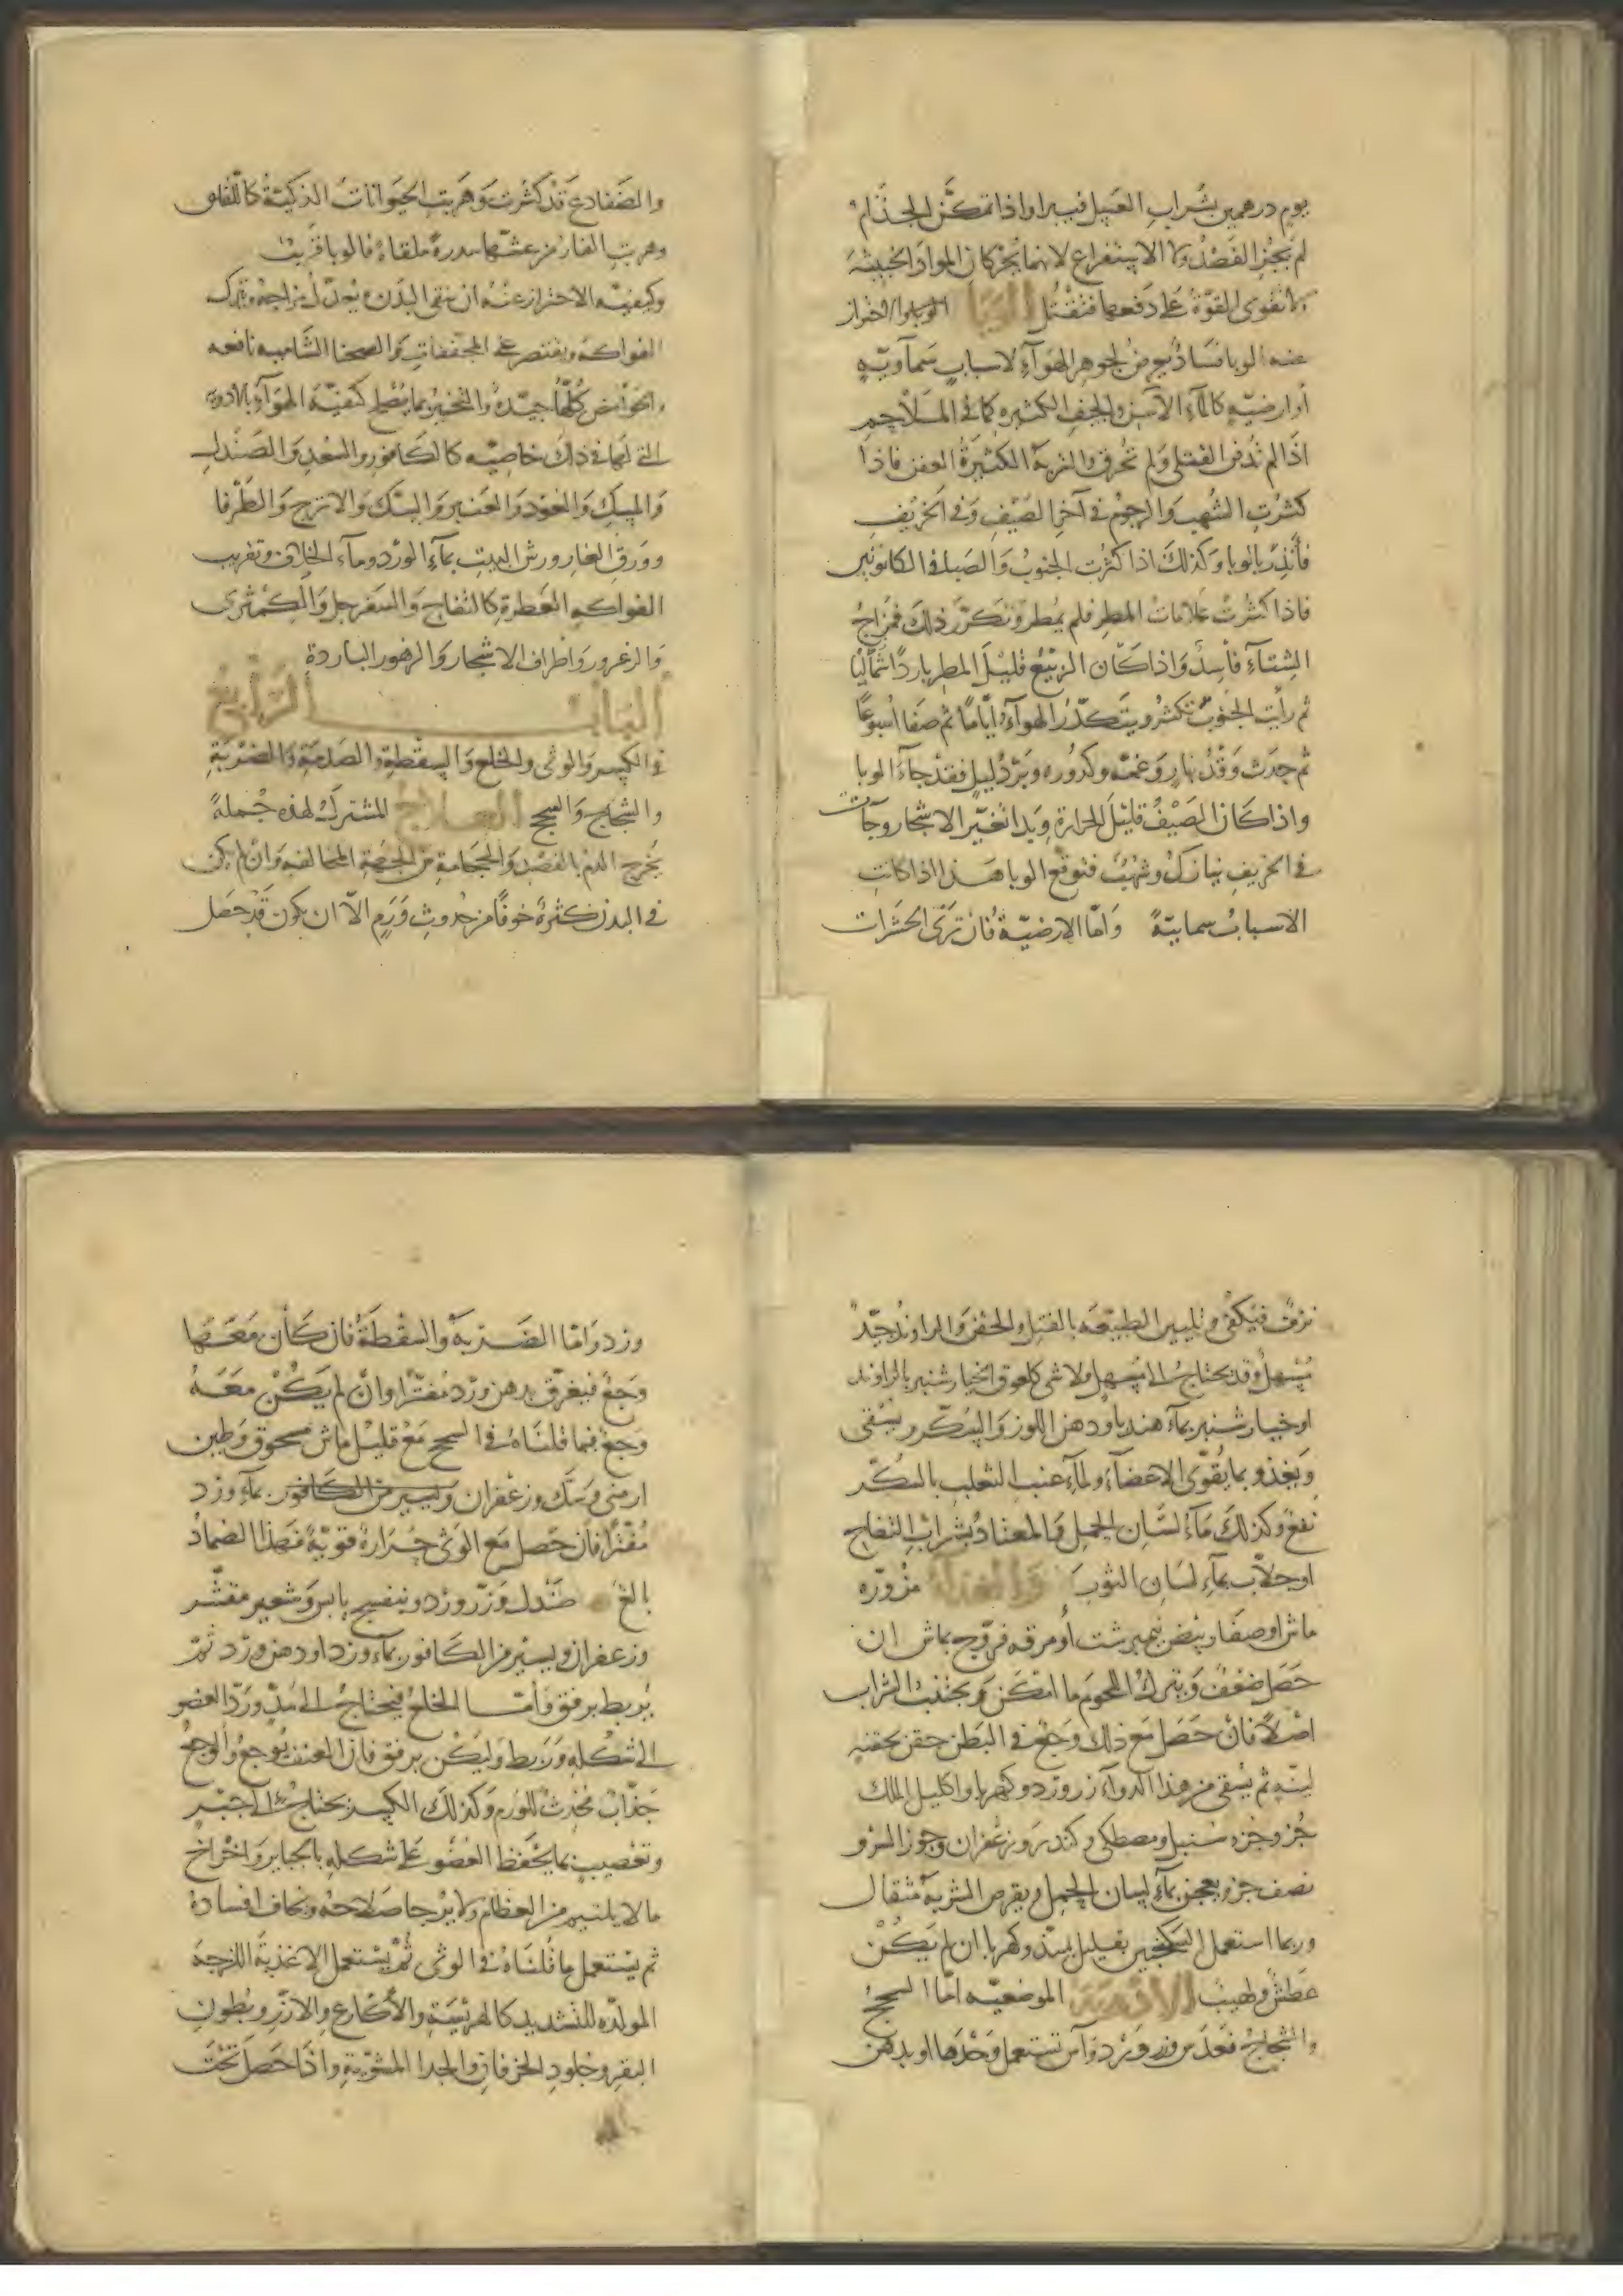 يوم درهمين بشراب العسل فيبرا واذا تمكن الجذام
لم يجز الفصد ولا الاستفراغ لانهما يحركان المواد الخبيثة
ولا تقوى القوة على دفعها فتقتل الوبا والاحتراز
عنه الوبا فساد يعرض لجوهر الهوآء لاسباب سماوية
أو ارضية كالمآء الآسن والجيف الكثيره كما في الملاحم
اذا لم تدفن القتلى ولم تحرق والتربة الكثيرة العفن فاذا
كثرت الشهب والرجوم في آخر الصيف وفي الخريف
فأنذر بالوبا وكذلك اذا كثرت الجنوب والصبا في الكانونين
فاذا كثرت علامات المطر فلم يمطر وتكرر ذلك فمزاج
الشتآء فاسد واذا كان الربيع قليل المطر باردا شماليا
ثم رأيت الجنوب تكثر ويتكدر الهوآء أياما ثم صفا أسبوعا
ثم حدث وقد نهار وغمه وكدوره وبرد ليل فقد جآء الوبا
واذا كان الصيف قليل الحرارة وبدا تغير الاشجار وجآت
في الخريف نيازك وشهب فتوقع الوبا هذا اذا كانت
الاسباب سمايية وأما الارضية فان ترى الحشرات
والضفادع قد كثرت وهربت الحيوانات الذكية كاللقلق
وهرب الفار من عشها سدرة ملقاة فالوبا قريب
وكيفية الاحتراز عنه ان ينقى البدن ويعدل مزاجه وتترك
الفواكه ويقتصر على المجففات والصحنا الشامية نافعه
والحوامض كلها جيدة والتبخير بما يصلح كيفية الهوآء بالادوية
التي لها في ذلك خاصية كالكافور والسعد والصندل
والمسك والعود والعنبر والسك والاترج والطرفا
وورق الغار ورش البيت بمآء الورد ومآء الخلاف وتقريب
الفواكه العطرة كالتفاح والسفرجل والكمثرى
والزعرور واطراف الاشجار والزهور الباردة
الباب الرابع
في الكسر والوثي والخلع والسقطة والصدمة والضربة
والشجاج والسحج العلاج المشترك لهذه جملة
يخرج الدم بالفصد والحجامة من الجهة المخالفة وان لم يكن
في البدن كثرة خوفا من حدوث ورم الا ان يكون قد حصل
نزف فيكفي وتليين الطبيعه بالفتل والحقن والراوند جيد
يسهل وقد يحتاج الى مسهل ولا شي كلعوق الخيار شنبر بالراوند
او خيار شنبر بمآء هندبا ودهن اللوز والسكر ويسقى
ويغذو بما يقوي الاعضآء ولمآء عنب الثعلب بالسكر
نفع وكذلك مآء لسان الحمل والمعتاد بشراب التفاح
او جلاب بمآء لسان الثور والغذآء مزوره
ماش او صفار بيض نيمبرشت أو مرقه فروج بماش ان
حصل ضعف ويترك اللحوم ما امكن ويجتنب الشراب
اصلا فان حصل مع ذلك وجع في البطن حقن بحقنه
لينه ثم يسقى من هذا الدوآء زر ورد وكهربا واكليل الملك
جز وجزه سنبل ومصطكي وكندر وزعفران وجوز السرو
نصف جز ويعجن بمآء لسان الحمل ويقرص الشربة مثقال
وربما استعمل السكنجبين بقليل بسد وكهربا ان لم يكن
عطش ولهيب الادوية الموضعيه اما السحج
والشجاج فعدس وزر ورد وآس تستعمل وحدها او بدهن
ورد وأما الضربة والسقطة فان كان معها
وجع فيغرق بدهن ورد مفترا وان لم يكن معه
وجع فبما قلناه في السحج مع قليل ماش مسحوق وطين
ارمني وسك وزعفران ويسير من الكافور بمآء ورد
مفترا فان حصل مع الوثي حرارة قوية فهذا الضماد
بالغ صندل وزر ورد وبنفسج يابس وشعير مقشر
وزعفران ويسير من الكافور بمآء ورد او دهن ورد ثم
يربط برفق وأما الخلع فيحتاج الى مد ورد العضو
الى شكله وربط وليكن برفق فان العنف يوجع والوجع
جذاب محدث للورم وكذلك الكسر يحتاج الى جبر
وتعصيب بما يحفظ العضو على شكله بالجباير واخراج
ما لا يلتئم من العظام ولا يرجا صلاحه ويخاف افساده
ثم يستعمل ما قلناه في الوثي ثم يستعمل الاغذية اللزجة
المولده للتشديد كالهريسة والأكارع والارز وبطون
البقر وجلود الخرفان والجدا المشوية واذا حصل تحت